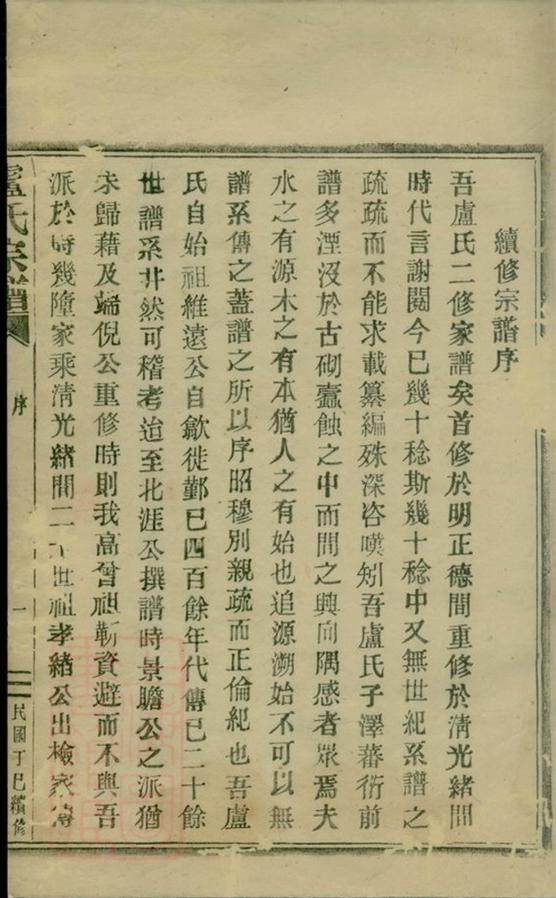 續修宗譜序
吾盧氏二修家譜矣首修於明正德間重修於清光緒間
時代言謝閱今已幾十稔斯幾十稔中又無世紀系譜之
疏疏而不能求載纂編殊深咨嘆矧吾盧氏子澤蕃衍前
譜多湮沒於古砌蠹蝕之中而間之興向隅感者眾焉夫
水之有源木之有本猶人之有始也追源溯始不可以無
譜系傳之蓋譜之所以序昭穆別親疏而正倫紀也吾盧
氏自始祖維遠公自歙徙鄞已四百餘年代傳已二十餘
世譜系井然可稽考迨至北涯公撰譜時景瞻公之派猶
未歸藉及端倪公重修時則我高曾祖靳資避而不與吾
派於時幾墮家乘清光緒間二世祖孝緒公出檢家
盧氏宗譜
序
一
民國丁巳續修